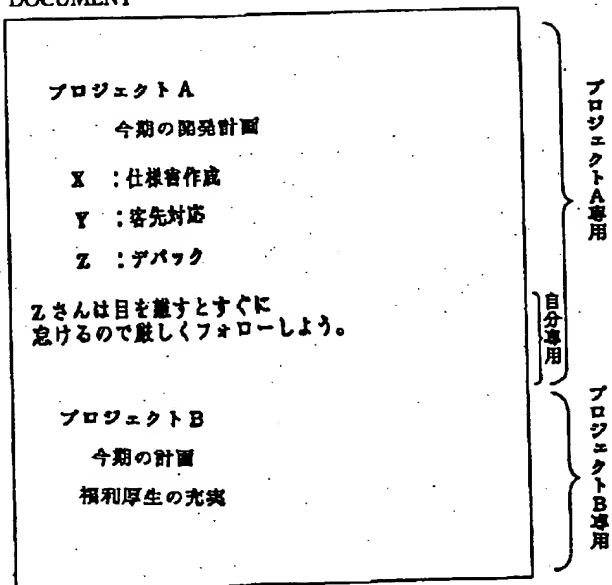 DOCUMENT
プロジェクトA
今期の開発計画
X :仕様書作成
Y :客先対応
Z :デバック
Zさんは目を離すとすぐに
怠けるので厳しくフォローしよう。
プロジェクトB
今期の計画
福利厚生の充実
プロジェクトA専用
自分専用
プロジェクトB専用